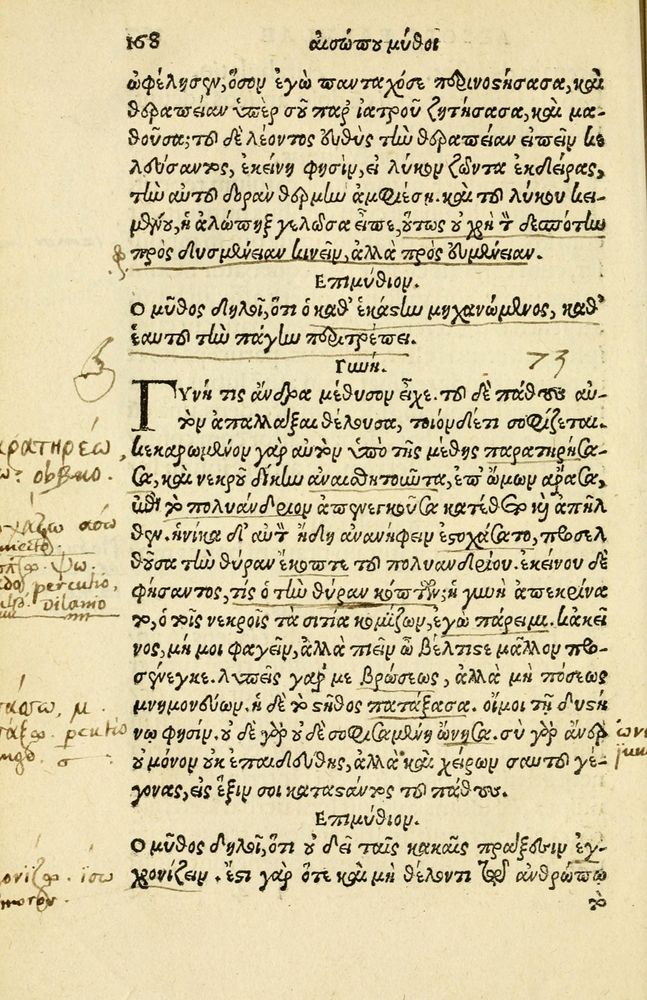 168 αἰσώπου μῦθοι
ὠφέλησεν, ὅσον ἐγὼ πανταχόσε περινοστήσασα, καὶ
θεραπείαν ὑπὲρ σοῦ παρ' ἰατροῦ ζητήσασα, καὶ μα-
θοῦσα; τοῦ δὲ λέοντος εὐθὺς τὴν θεραπείαν εἰπεῖν κε
λεύσαντος, ἐκείνη φησὶν, εἰ λύκον ζῶντα ἐκδείρας,
τὴν αὐτοῦ δορὰν θερμὴν ἀμφιέσῃ. καὶ τοῦ λύκου κει-
μένου, ἡ ἀλώπηξ γελῶσα εἶπε, οὕτως οὐ χρὴ τὸν δεσπότην
πρὸς δυσμένειαν κινεῖν, ἀλλὰ πρὸς εὐμένειαν.
Επιμύθιον.
Ο μῦθος δηλοῖ, ὅτι ὁ καθ' ἑκάστην μηχανώμενος, καθ'
ἑαυτοῦ τὴν πάγην περιτρέπει.
Γυνή. 73
ΓΥνή τις ἄνδρα μέθυσον εἶχε. τοῦ δὲ πάθους αὐ-
τὸν ἀπαλλάξαι θέλουσα, τοιόνδε τι σοφίζεται.
κεκαρωμένον γὰρ αὐτὸν ὑπὸ τῆς μέθης παρατηρήσα-
σα, καὶ νεκροῦ δίκην ἀναισθητοῦντα, ἐπ' ὤμων ἄρασα,
ἐπὶ τὸ πολυάνδριον ἀπενεγκοῦσα κατέθετο καὶ ἀπῆλ
θεν. ἡνίκα δ' αὐτὸν ἤδη ἀνανήφειν ἐστοχάσατο, προσελ
θοῦσα τὴν θύραν ἔκοπτε τοῦ πολυανδρίου. ἐκείνου δὲ
φήσαντος, τίς ὁ τὴν θύραν κόπτων; ἡ γυνὴ ἀπεκρίνα
το, ὁ τοῖς νεκροῖς τὰ σιτία κομίζων, ἐγὼ πάρειμι. κἀκεῖ
νος, μή μοι φαγεῖν, ἀλλὰ πιεῖν ὦ βέλτιστε μᾶλλον προ-
σένεγκε. λυπεῖς γάρ με βρώσεως, ἀλλὰ μὴ πόσεως
μνημονεύων. ἡ δὲ τὸ στῆθος πατάξασα. οἴμοι τῇ δυστή
νῳ φησὶν. οὐ δὲ γὰρ οὐδὲ σοφισαμένη ὤνησα. σὺ γὰρ ἄνερ
οὐ μόνον οὐκ ἐπαιδεύθης, ἀλλὰ καὶ χείρων σαυτοῦ γέ-
γονας, εἰς ἕξιν σοι καταστάντος τοῦ πάθους.
Επιμύθιον.
Ο μῦθος δηλοῖ, ὅτι οὐ δεῖ ταῖς κακαῖς πράξεσιν ἐγ-
χρονίζειν. ἔστι γὰρ ὅτε καὶ μὴ θέλοντι τῷ ἀνθρώπῳ
τὸ